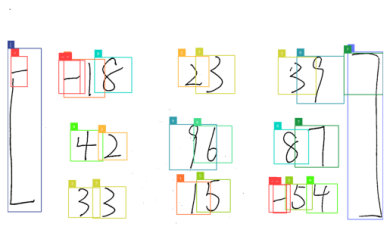 [ -18 23 39 ]
42 96 87
33 15 -54